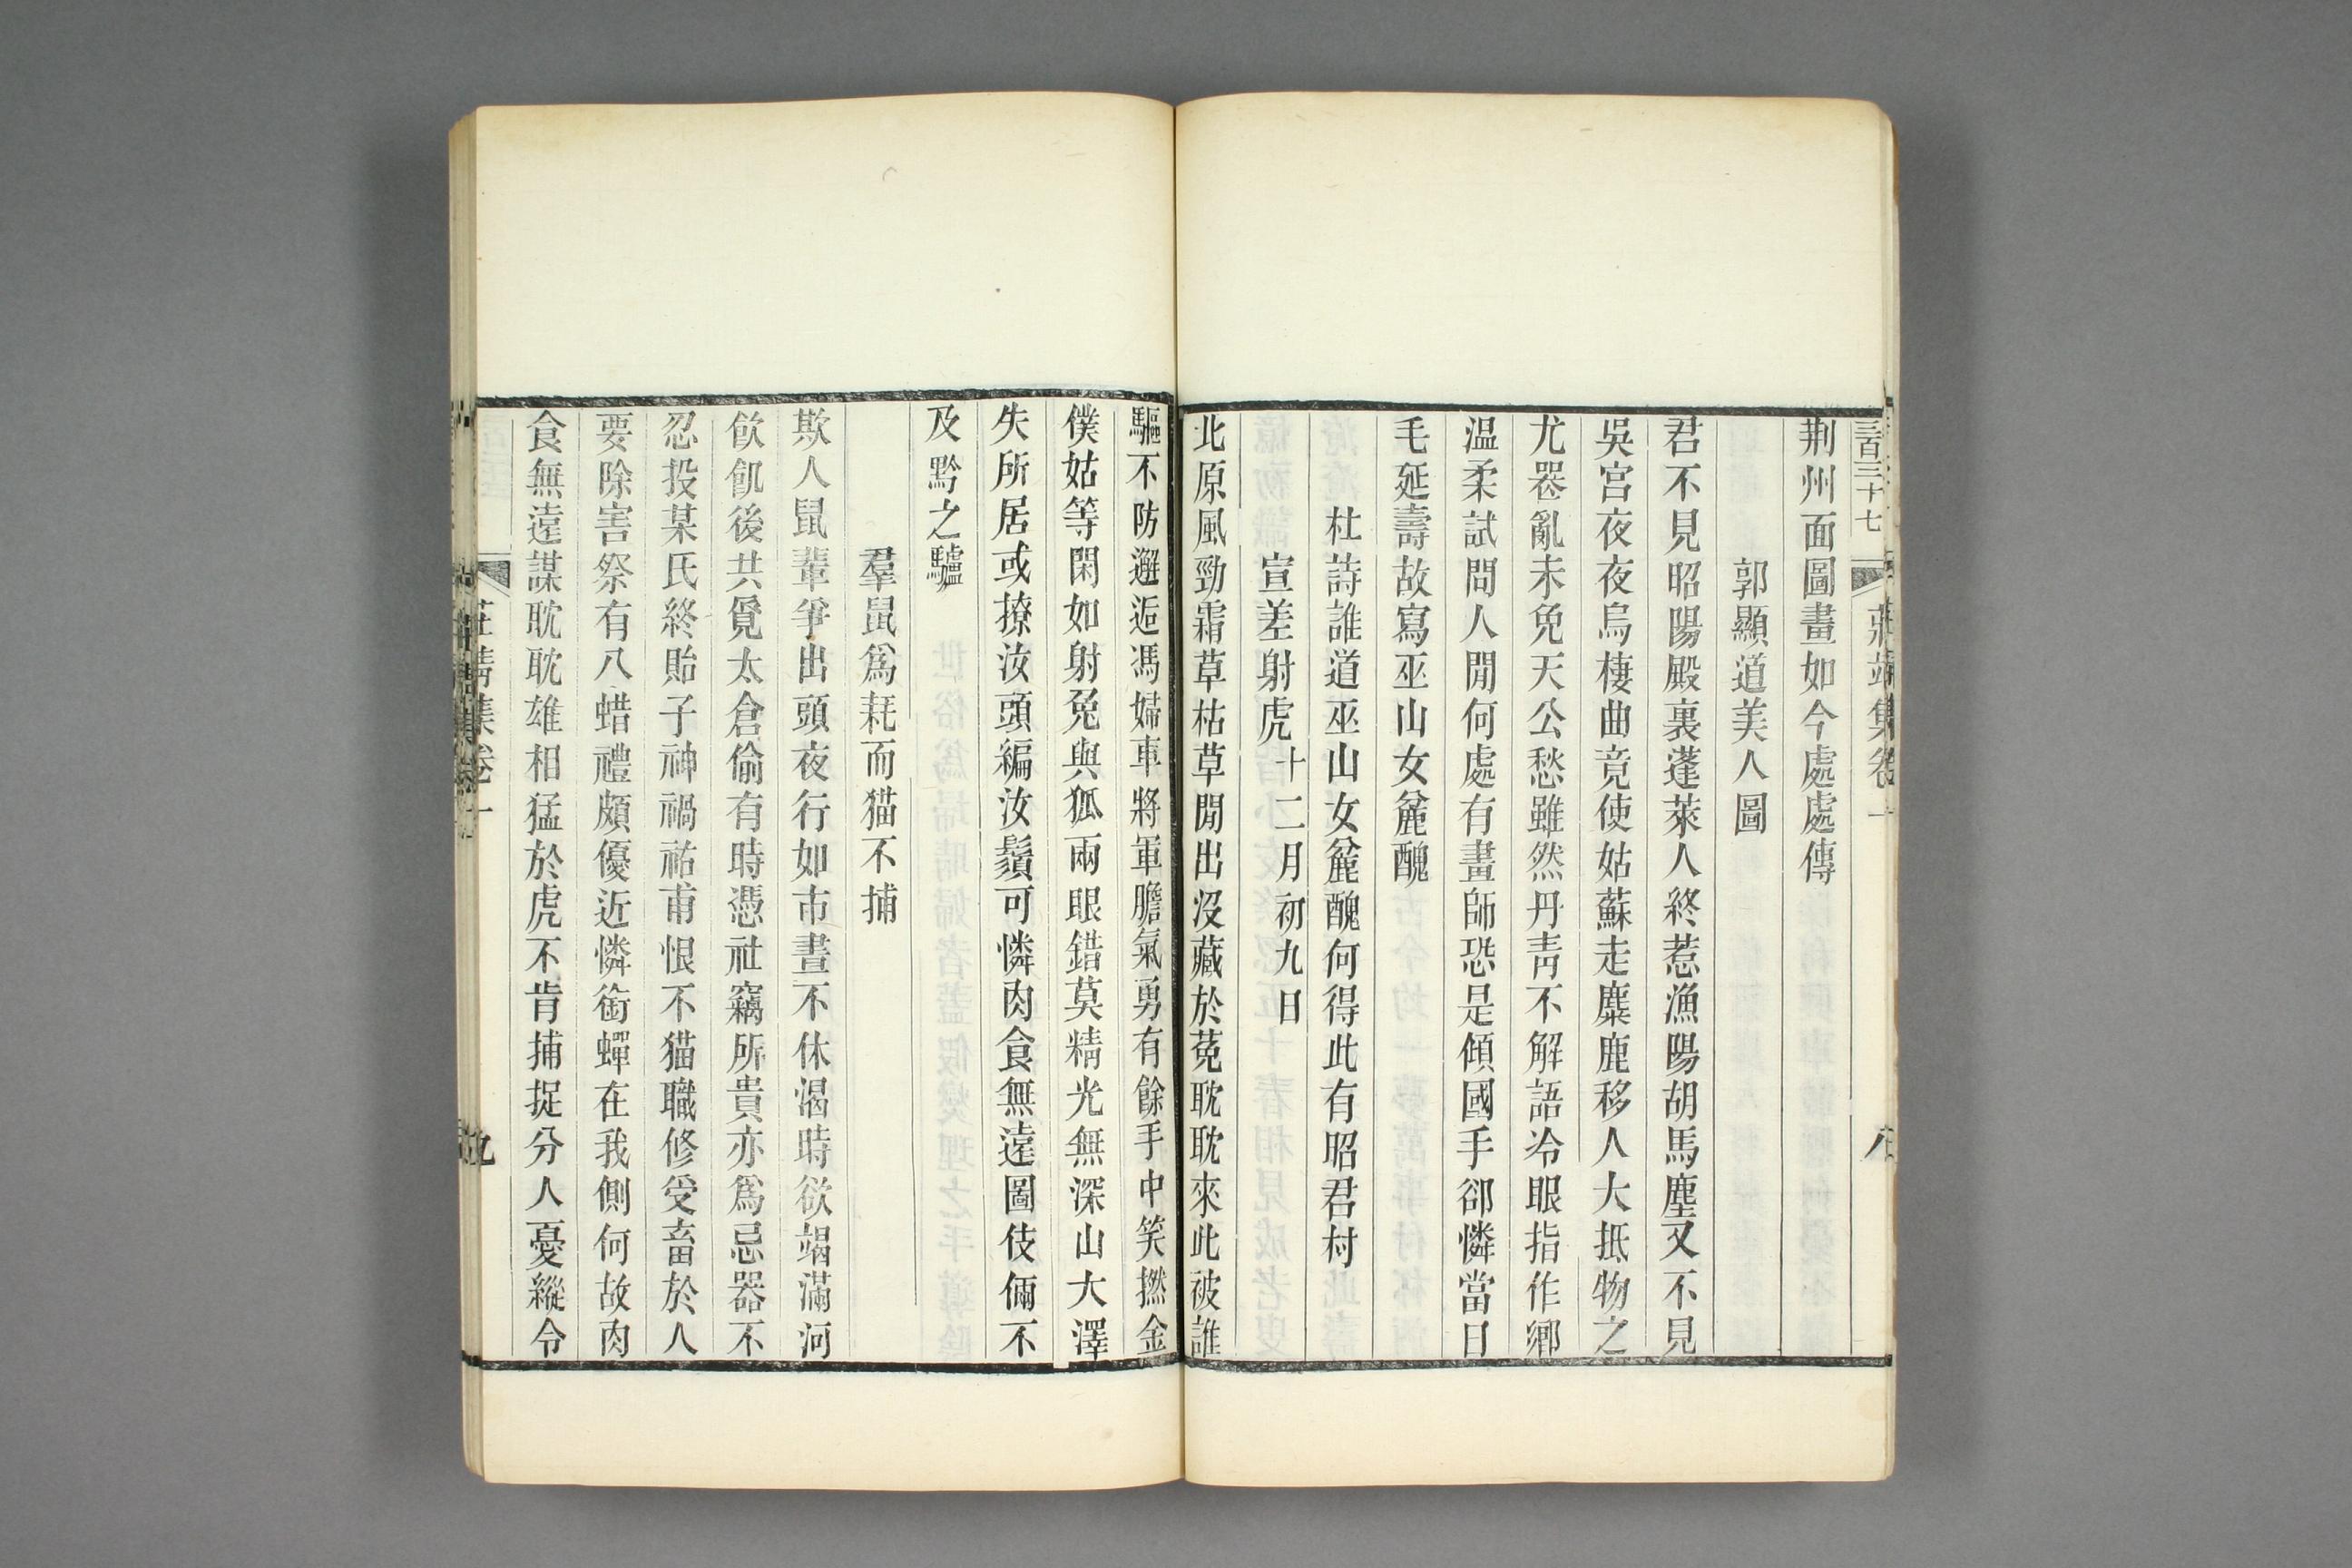 三百三十七
莊靖集卷一
八
荆州面圖畫如今處處傳
郭顯道美人圖
君不見昭陽殿裏蓬萊人終惹漁陽胡馬塵又不見
吳宮夜夜烏棲曲竟使姑蘇走麋鹿移人大抵物之
尤器亂未免天公愁雖然丹青不解語冷眼指作鄉
温柔試問人閒何處有畫師恐是傾國手卻憐當日
毛延壽故寫巫山女麄醜
杜詩誰道巫山女麄醜何得此有昭君村
宣差射虎十二月初九日
北原風勁霜草枯草閒出沒藏於菟耽耽來此被誰
驅不防邂逅馮婦車將軍膽氣勇有餘手中笑撚金
僕姑等閑如射兔與狐兩眼錯莫精光無深山大澤
失所居或撩汝頭編汝鬚可憐肉食無遠圖伎倆不
及黔之驢
羣鼠爲耗而猫不捕
欺人鼠輩爭出頭夜行如市晝不休渴時欲竭滿河
飮飢後共覓太倉偷有時憑社竊所貴亦爲忌器不
忍投某氏終貽子神禍祐甫恨不猫職修受畜於人
要除害祭有八蜡禮頗優近憐銜蟬在我側何故肉
食無遠謀耽耽雄相猛於虎不肯捕捉分人憂縱令
莊靖集卷一
九